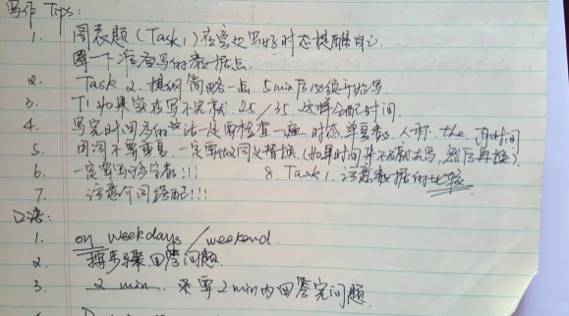 写作 Tips:
1. 图表题 (Task 1) 在旁边写好时态提醒自己.
圈一下准备写的数据点.
2. Task 2. 提纲简略一点. 5min后必须开始写.
3. T1 如果实在写不完就 25/35. 这样分配时间.
4. 写完时间多的话一定要检查一遍 时态, 单复数, 人称, the, 时间
5. 用词不要重复. 一定要做同义替换 (如果时间来不及就先写, 然后再换).
6. 一定要写够字数!!! 8. Task 1. 注意数据的比较
7. 注意介词搭配!!!
口语:
1. on weekdays / weekend.
2. 按步骤回答问题.
3. 2 min. 需要2min内回答完问题.